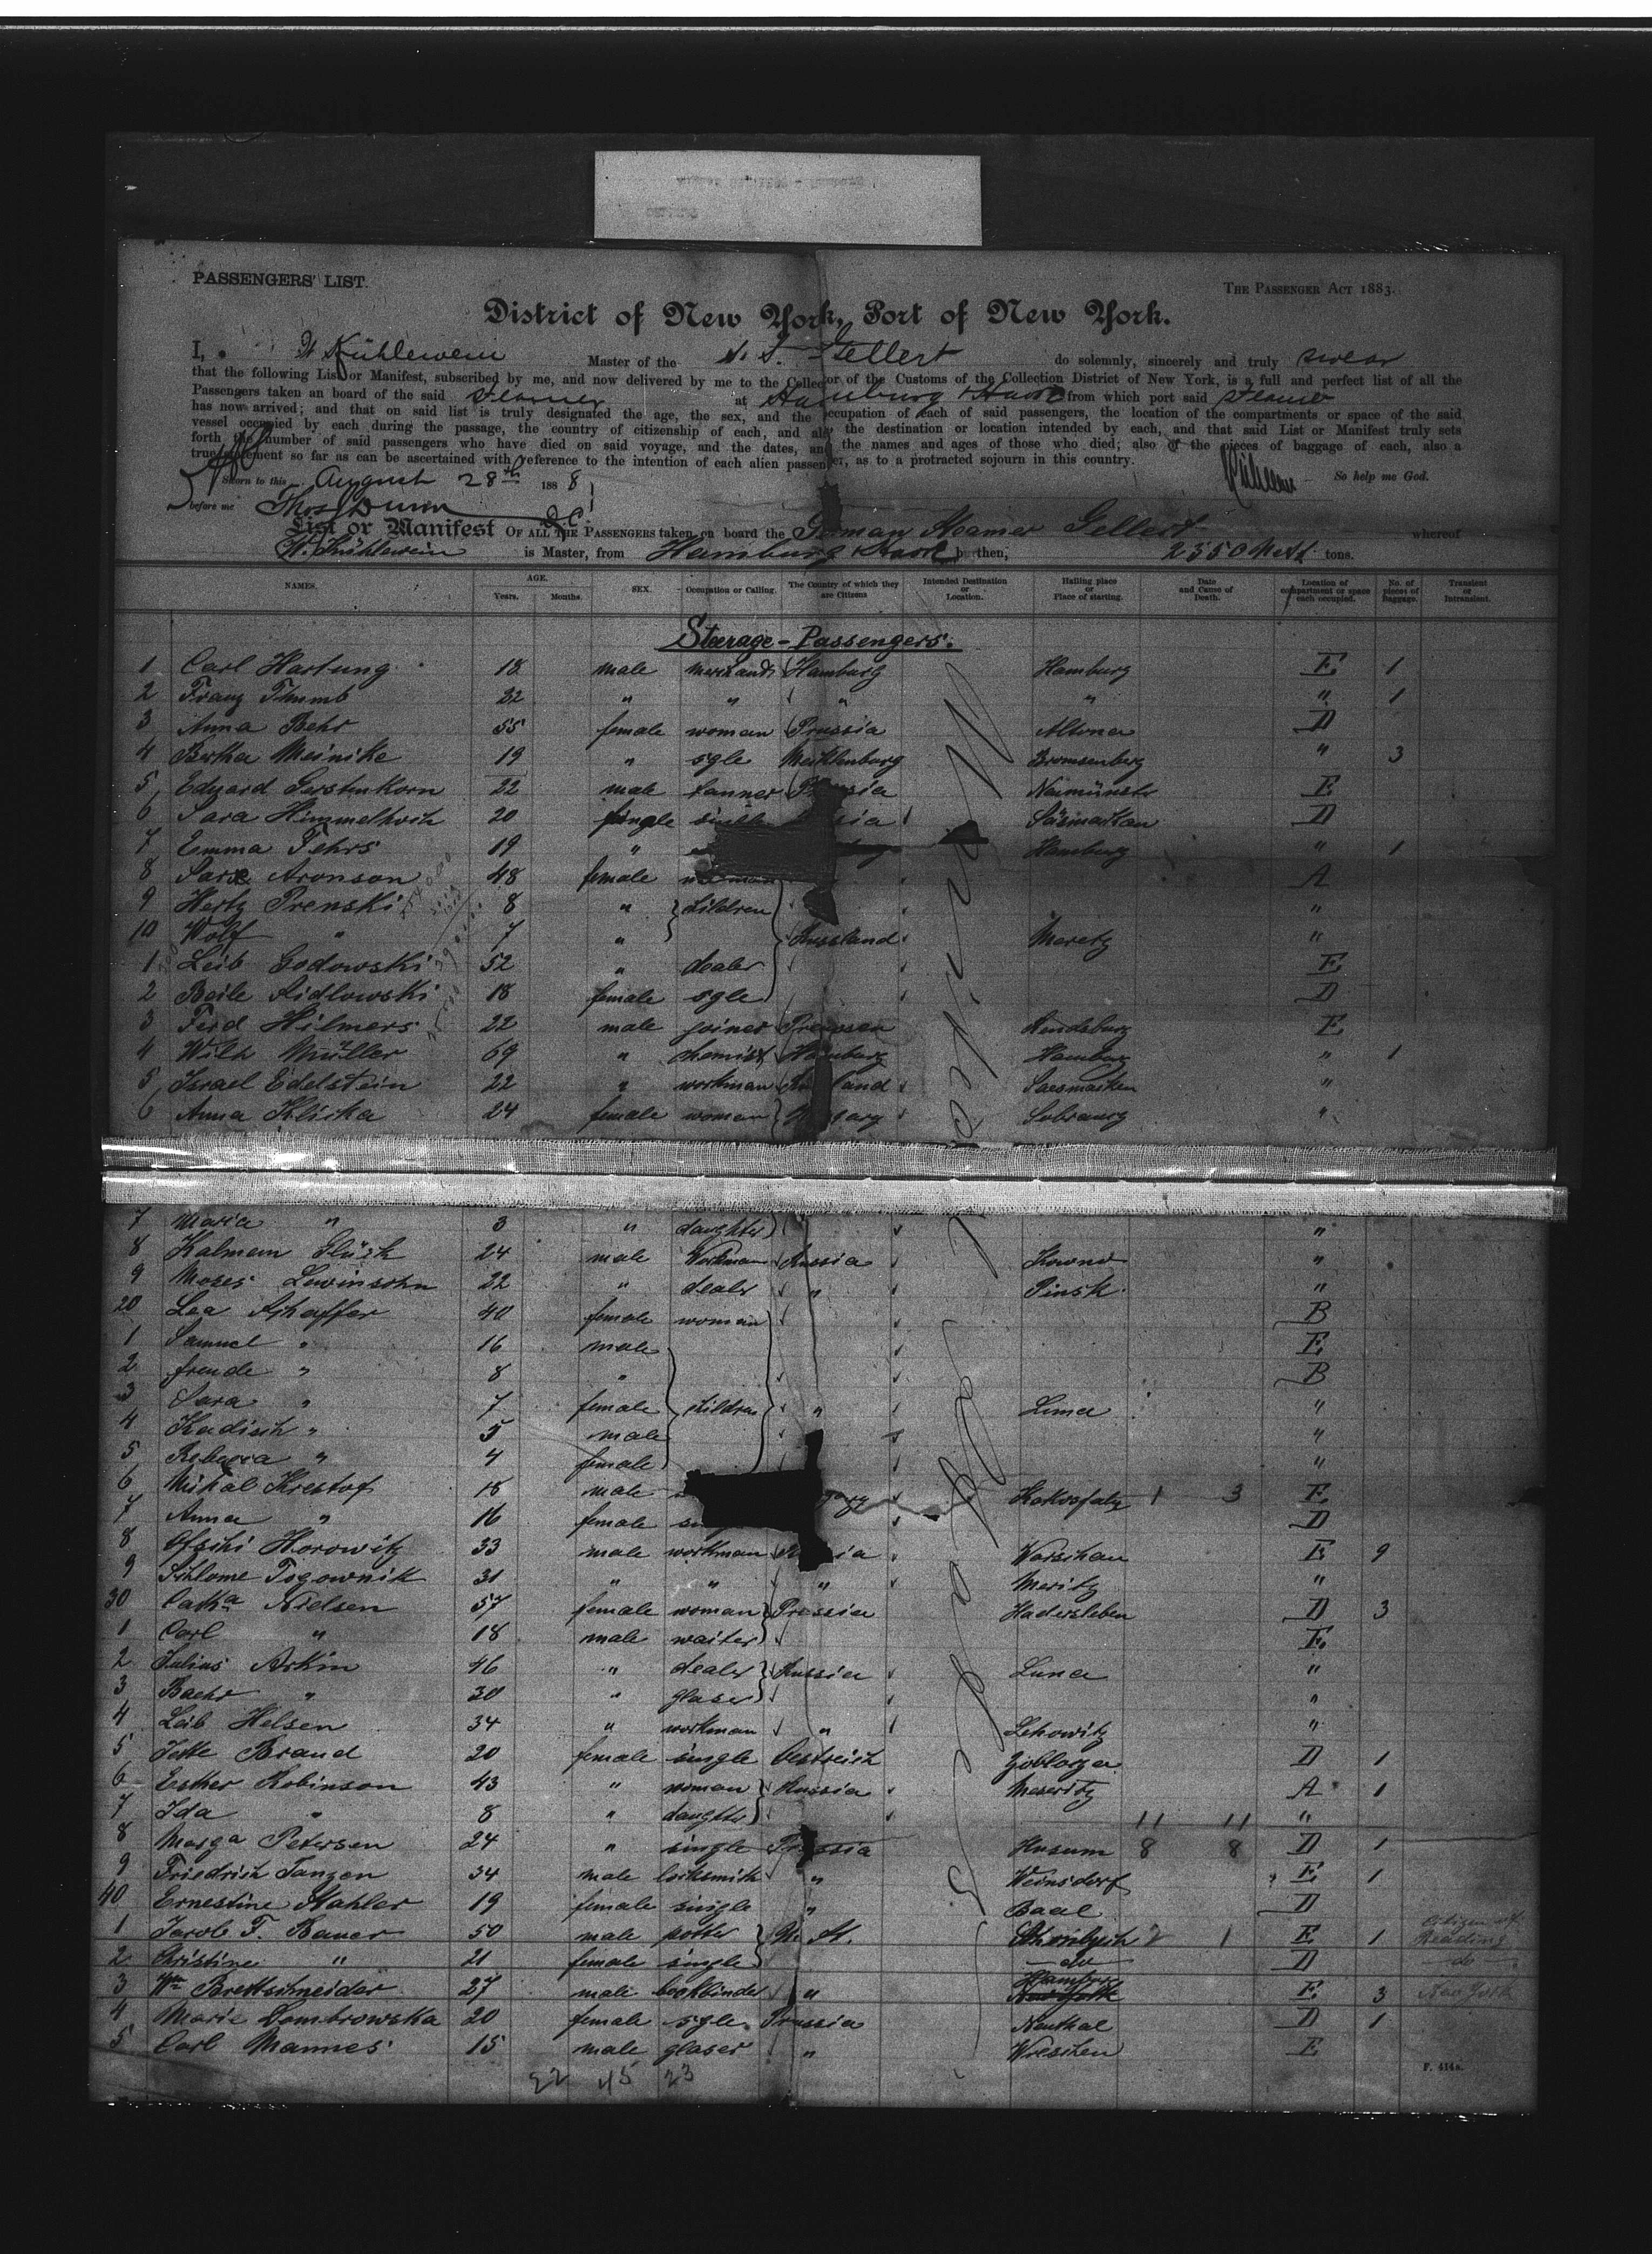 PASSENGERS' LIST.
THE PASSENGER ACT 1883.
District of New York, Port of New York.
I, W Kühlewein Master of the S. S. Gellert do solemnly, sincerely and truly swear
that the following List or Manifest, subscribed by me, and now delivered by me to the Collector of the Customs of the Collection District of New York, is a full and perfect list of all the
Passengers taken on board of the said Steamer at Hamburg & Havre from which port said Steamer
has now arrived; and that on said list is truly designated the age, the sex, and the occupation of each of said passengers, the location of the compartments or space of the said
vessel occupied by each during the passage, the country of citizenship of each, and also the destination or location intended by each, and that said List or Manifest truly sets
forth the number of said passengers who have died on said voyage, and the dates, and the names and ages of those who died; also of the pieces of baggage of each, also a
true statement so far as can be ascertained with reference to the intention of each alien passenger, as to a protracted sojourn in this country.
Sworn to this August 28th 1888 So help me God.
before me Thos Dunn
List or Manifest OF ALL THE PASSENGERS taken on board the German Steamer Gellert whereof
W. Kühlewein is Master, from Hamburg & Havre burthen, 2350 Nett tons.
NAMES. AGE. Years. Months. SEX. Occupation or Calling. The Country of which they are Citizens Intended Destination or Location. Hailing place or Place of starting. Date and Cause of Death. Location of compartment or space each occupied. No. of pieces of Baggage. Transient or Intransient.
Steerage-Passengers.
1 Carl Hartung 18 male merchants Hamburg Hamburg E 1
2 Franz Thumb 32 " " " " " 1
3 Anna Behr 55 female woman Prussia Altona D
4 Bertha Meinike 19 " sgle Mecklenburg " 3
5 Eduard Gerstenkorn 22 male tanner Neumünster E
6 Sara Himmelhoch 20 Sasmackau D
7 Emma Fehrs 19 " Hamburg " 1
8 Sara Aronson 48 female A
9 Hertz Prenski 8 " children "
10 Wolf " 7 " Russland Meretz "
1 Leib Godowski 52 " dealer E
2 Beile Sidlowski 18 female sgle D
3 Ferd Hilmers 22 male joiner Preussen Rendsburg E
4 Wilh Müller 69 " chemist Hamburg Hamburg " 1
5 Israel Edelstein 22 " workman Sassmacken "
6 Anna Hliska 24 female woman "
7 Maria " 3 " daughter "
8 Kalmann 24 male Workman Russia Kowno "
9 Moses Lewinsohn 22 " dealer " Pinsk "
20 Lea Schaffer 40 female woman B
1 Samuel " 16 male E
2 freude " 8 " B
3 Sara " 7 female children " Luna "
4 Kadisch " 5 male "
5 Rebecca " 4 female "
6 Mihal Krestof 18 male 1 3 E
7 Anna " 16 female D
8 Horowitz 33 male workman Warschau E 9
9 Schlome Togownik 31 " " " Meritz "
30 Catha Nielsen 57 female woman Prussia Hadersleben D 3
1 Carl " 18 male waiter E
2 Julius Arkin 46 " dealer Russia Luna "
3 Baehr " 30 " glaser "
4 Leib Helsen 34 " workman " Lehowitz "
5 Jette Brand 20 female single Oestreich D 1
6 Esther Robinson 43 " woman Russia Meseritz A 1
7 Ida " 8 " daughter 11 11 "
8 Marga Petersen 24 " single Prussia Husum 8 8 D 1
9 Friedrich Tanzen 34 male locksmith " Weinsdorf E 1
40 Ernestine Stahler 19 female single " Baal D
1 Jacob F. Bauer 50 male potter U. St. 2 1 E 1 Citizen of Reading
2 Christine " 21 female single do D do
3 Wm Brettschneider 27 male bookbinder " Hamburg New York E 3 New York
4 Marie Dombrowska 20 female sgle. Prussia Neuthal D 1
5 Carl Mannes 15 male glaser " Wreschen E
22 45 23
F. 414a.